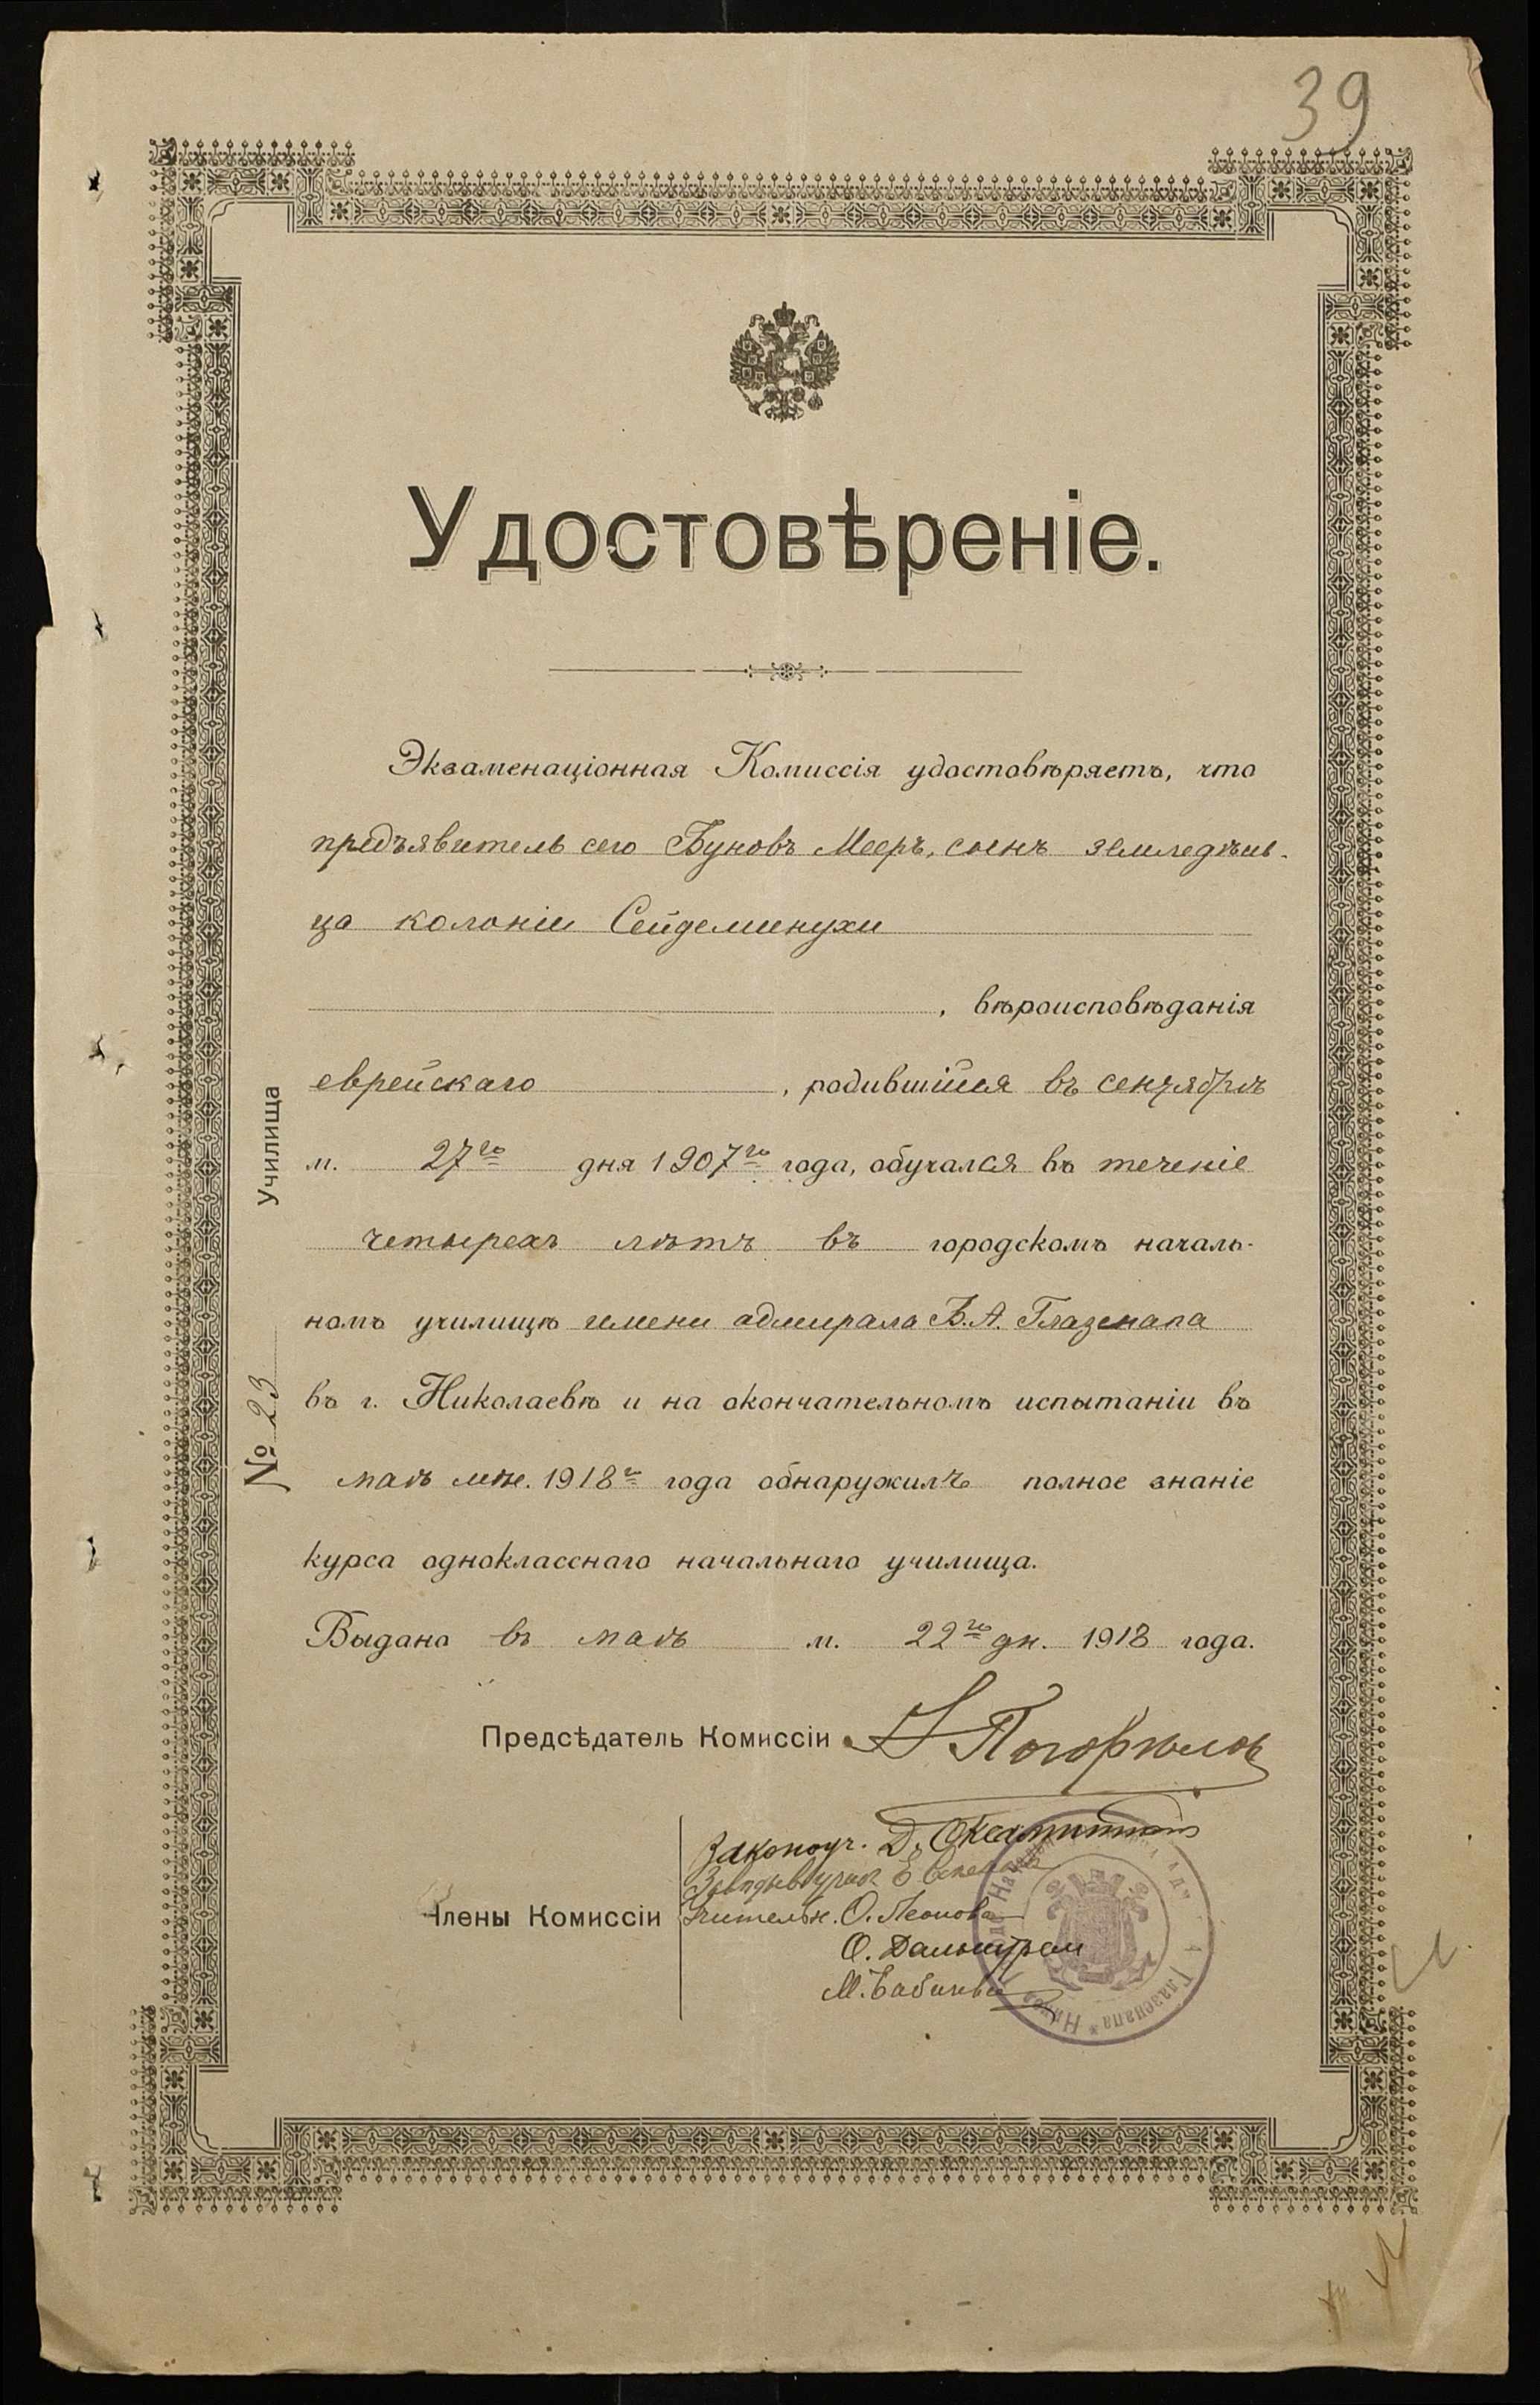 39
Удостовѣреніе.
Экзаменаціонная Комиссія удостовѣряетъ, что
предъявитель сего Буновъ Мееръ, сынъ земледѣль-
ца колоніи Сейдеминухи
, вѣроисповѣданія
еврейскаго, родившійся въ сентябрѣ
м. 27го дня 1907го года, обучался въ теченіе
четырехъ лѣтъ въ городскомъ началь-
номъ училищѣ имени адмирала Б. А. Глазенапа
въ г. Николаевѣ и на окончательномъ испытаніи въ
маѣ мѣс. 1918г года обнаружилъ полное знаніе
курса одноклассного начальнаго училища.
Выдано въ маѣ м. 22го дн. 1918 года.
Предсѣдатель Комиссіи Погорѣловъ
Законоуч. Д.
Члены Комиссіи Учительн. О. Леонова
О.
М.
Глазенапа
Училища
№ 23